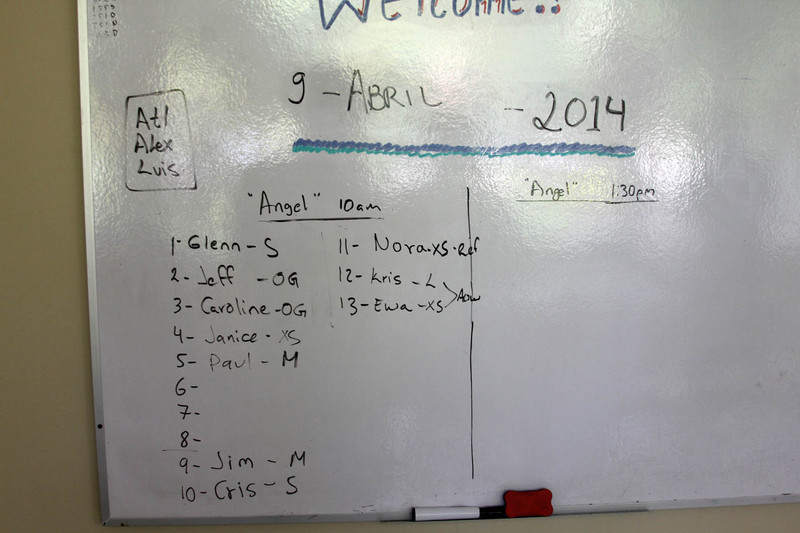 WELCOME!!
9 - ABRIL - 2014
Atl
Alex
Luis
"Angel" 10am
1- Glenn - S
2- Jeff - OG
3- Caroline - OG
4- Janice - XS
5- Paul - M
6-
7-
8-
9- Jim - M
10- Cris - S
11- Nora - XS - Ref
12- Kris - L
13- Ewa - XS
"Angel" 1:30pm